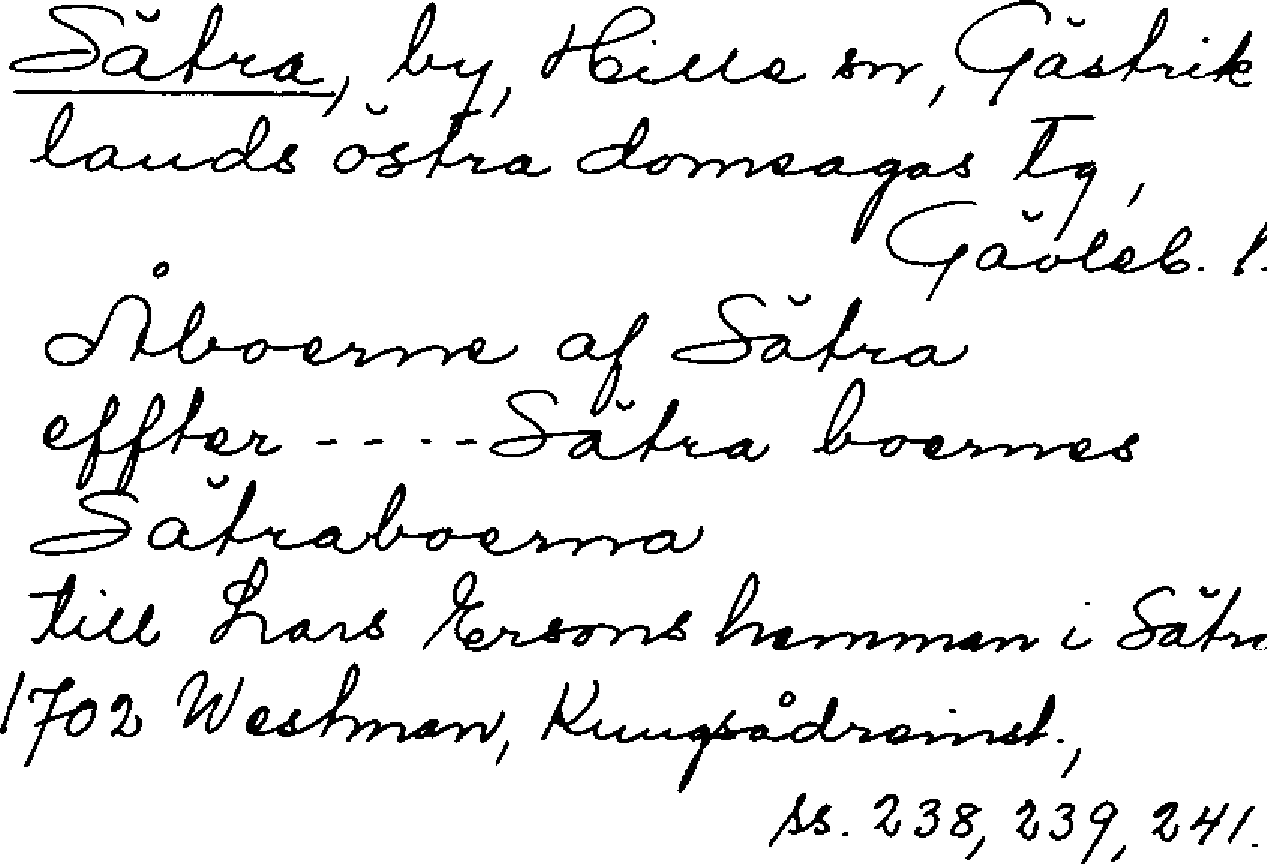 Sätra, by, Hille sn, Gästrik
lands östra domsagas tg,
Gävleb. l.
Åboerne af Sätra
effter - - - - Sätra boernes
Sätraboerna
till Lars Ersons hemman i Sätra
1702 Westman, Kungsådreinst.,
ss. 238, 239, 241.